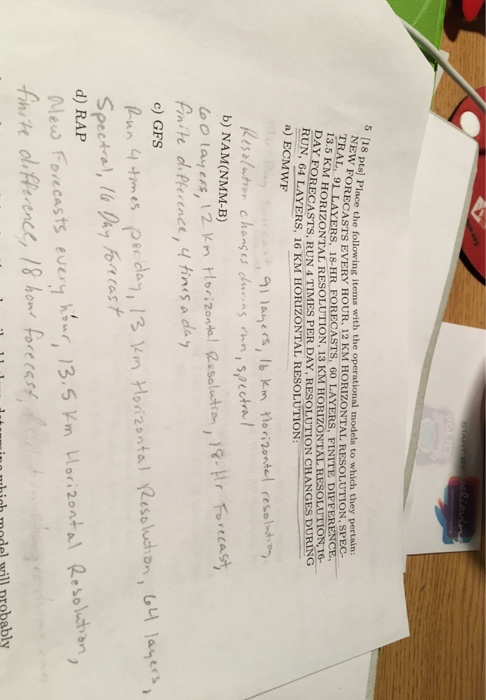 5 [18 pts] Place the following items with the operational models to which they pertain:
NEW FORECASTS EVERY HOUR, 12 KM HORIZONTAL RESOLUTION, SPEC-
TRAL, 91 LAYERS, 18-HR FORECASTS, 60 LAYERS, FINITE DIFFERENCE,
13.5 KM HORIZONTAL RESOLUTION, 13 KM HORIZONTAL RESOLUTION, 16-
DAY FORECASTS, RUN 4 TIMES PER DAY, RESOLUTION CHANGES DURING
RUN, 64 LAYERS, 16 KM HORIZONTAL RESOLUTION:
a) ECMWF
91 layers, 16 km Horizontal resolution,
Resolution changes during run, spectral
b) NAM(NMM-B)
60 layers, 12 Km Horizontal Resolution, 18-Hr Forecast,
finite difference, 4 times a day
c) GFS
Run 4 times per day, 13 km Horizontal Resolution, 64 layers,
Spectral, 16 Day Forecast
d) RAP
New Forecasts every hour, 13.5 Km Horizontal Resolution,
finite difference, 18 hour forecast,
which model will probably